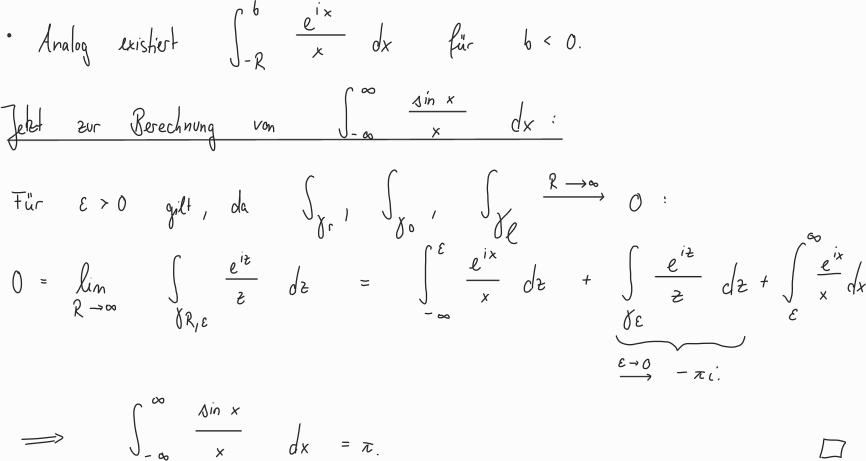 • Analog existiert $\int_{-R}^{b} \frac{e^{ix}}{x} dx$ für $b < 0$.
Jetzt zur Berechnung von $\int_{-\infty}^{\infty} \frac{\sin x}{x} dx$ :
Für $\varepsilon > 0$ gilt, da $\int_{\gamma_r}$, $\int_{\gamma_o}$, $\int_{\gamma_\ell} \xrightarrow{R \to \infty} 0$ :
$0 = \lim_{R \to \infty} \int_{\gamma_{R,\varepsilon}} \frac{e^{iz}}{z} dz = \int_{-\infty}^{\varepsilon} \frac{e^{ix}}{x} dz + \underbrace{\int_{\gamma_\varepsilon} \frac{e^{iz}}{z} dz}_{\xrightarrow{\varepsilon \to 0} -\pi i.} + \int_{\varepsilon}^{\infty} \frac{e^{ix}}{x} dx$
$\Longrightarrow \int_{-\infty}^{\infty} \frac{\sin x}{x} dx = \pi.$ □